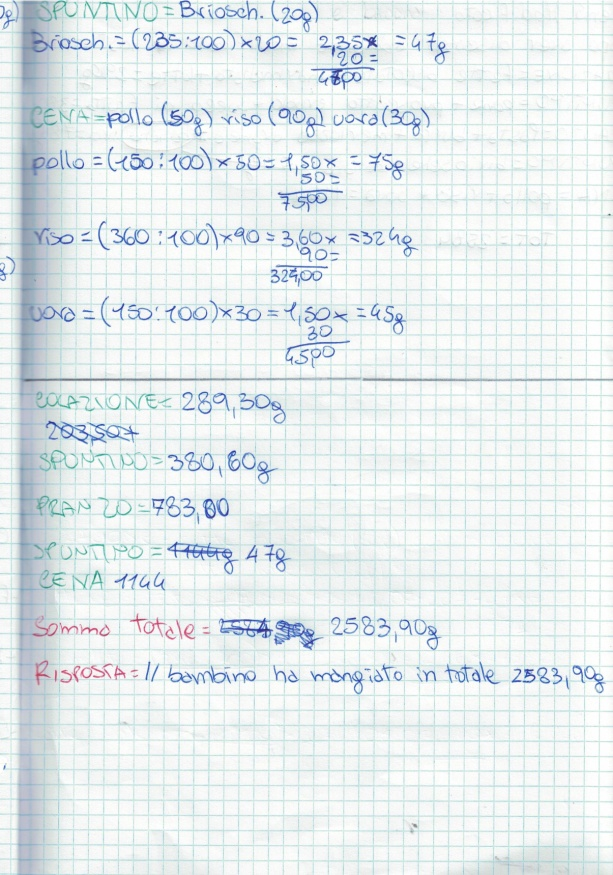 g) SPUNTINO = Briosch. (20g)
Briosch. = (235:100) × 20 = 2,35× = 47g
20=
4700
CENA = pollo (50g) riso (90g) uova (30g)
pollo = (150:100) × 50 = 1,50× = 75g
50=
75,00
riso = (360:100) × 90 = 3,60× = 324g
90=
g) 324,00
uova = (150:100) × 30 = 1,50× = 45g
30
45,00
COLAZIONE = 289,30g
203,50+
SPUNTINO = 380,60g
PRANZO = 783,00
SPUNTINO = 1144g 47g
CENA 1144
Somma totale = 2584 90g 2583,90g
RISPOSTA = Il bambino ha mangiato in totale 2583,90g